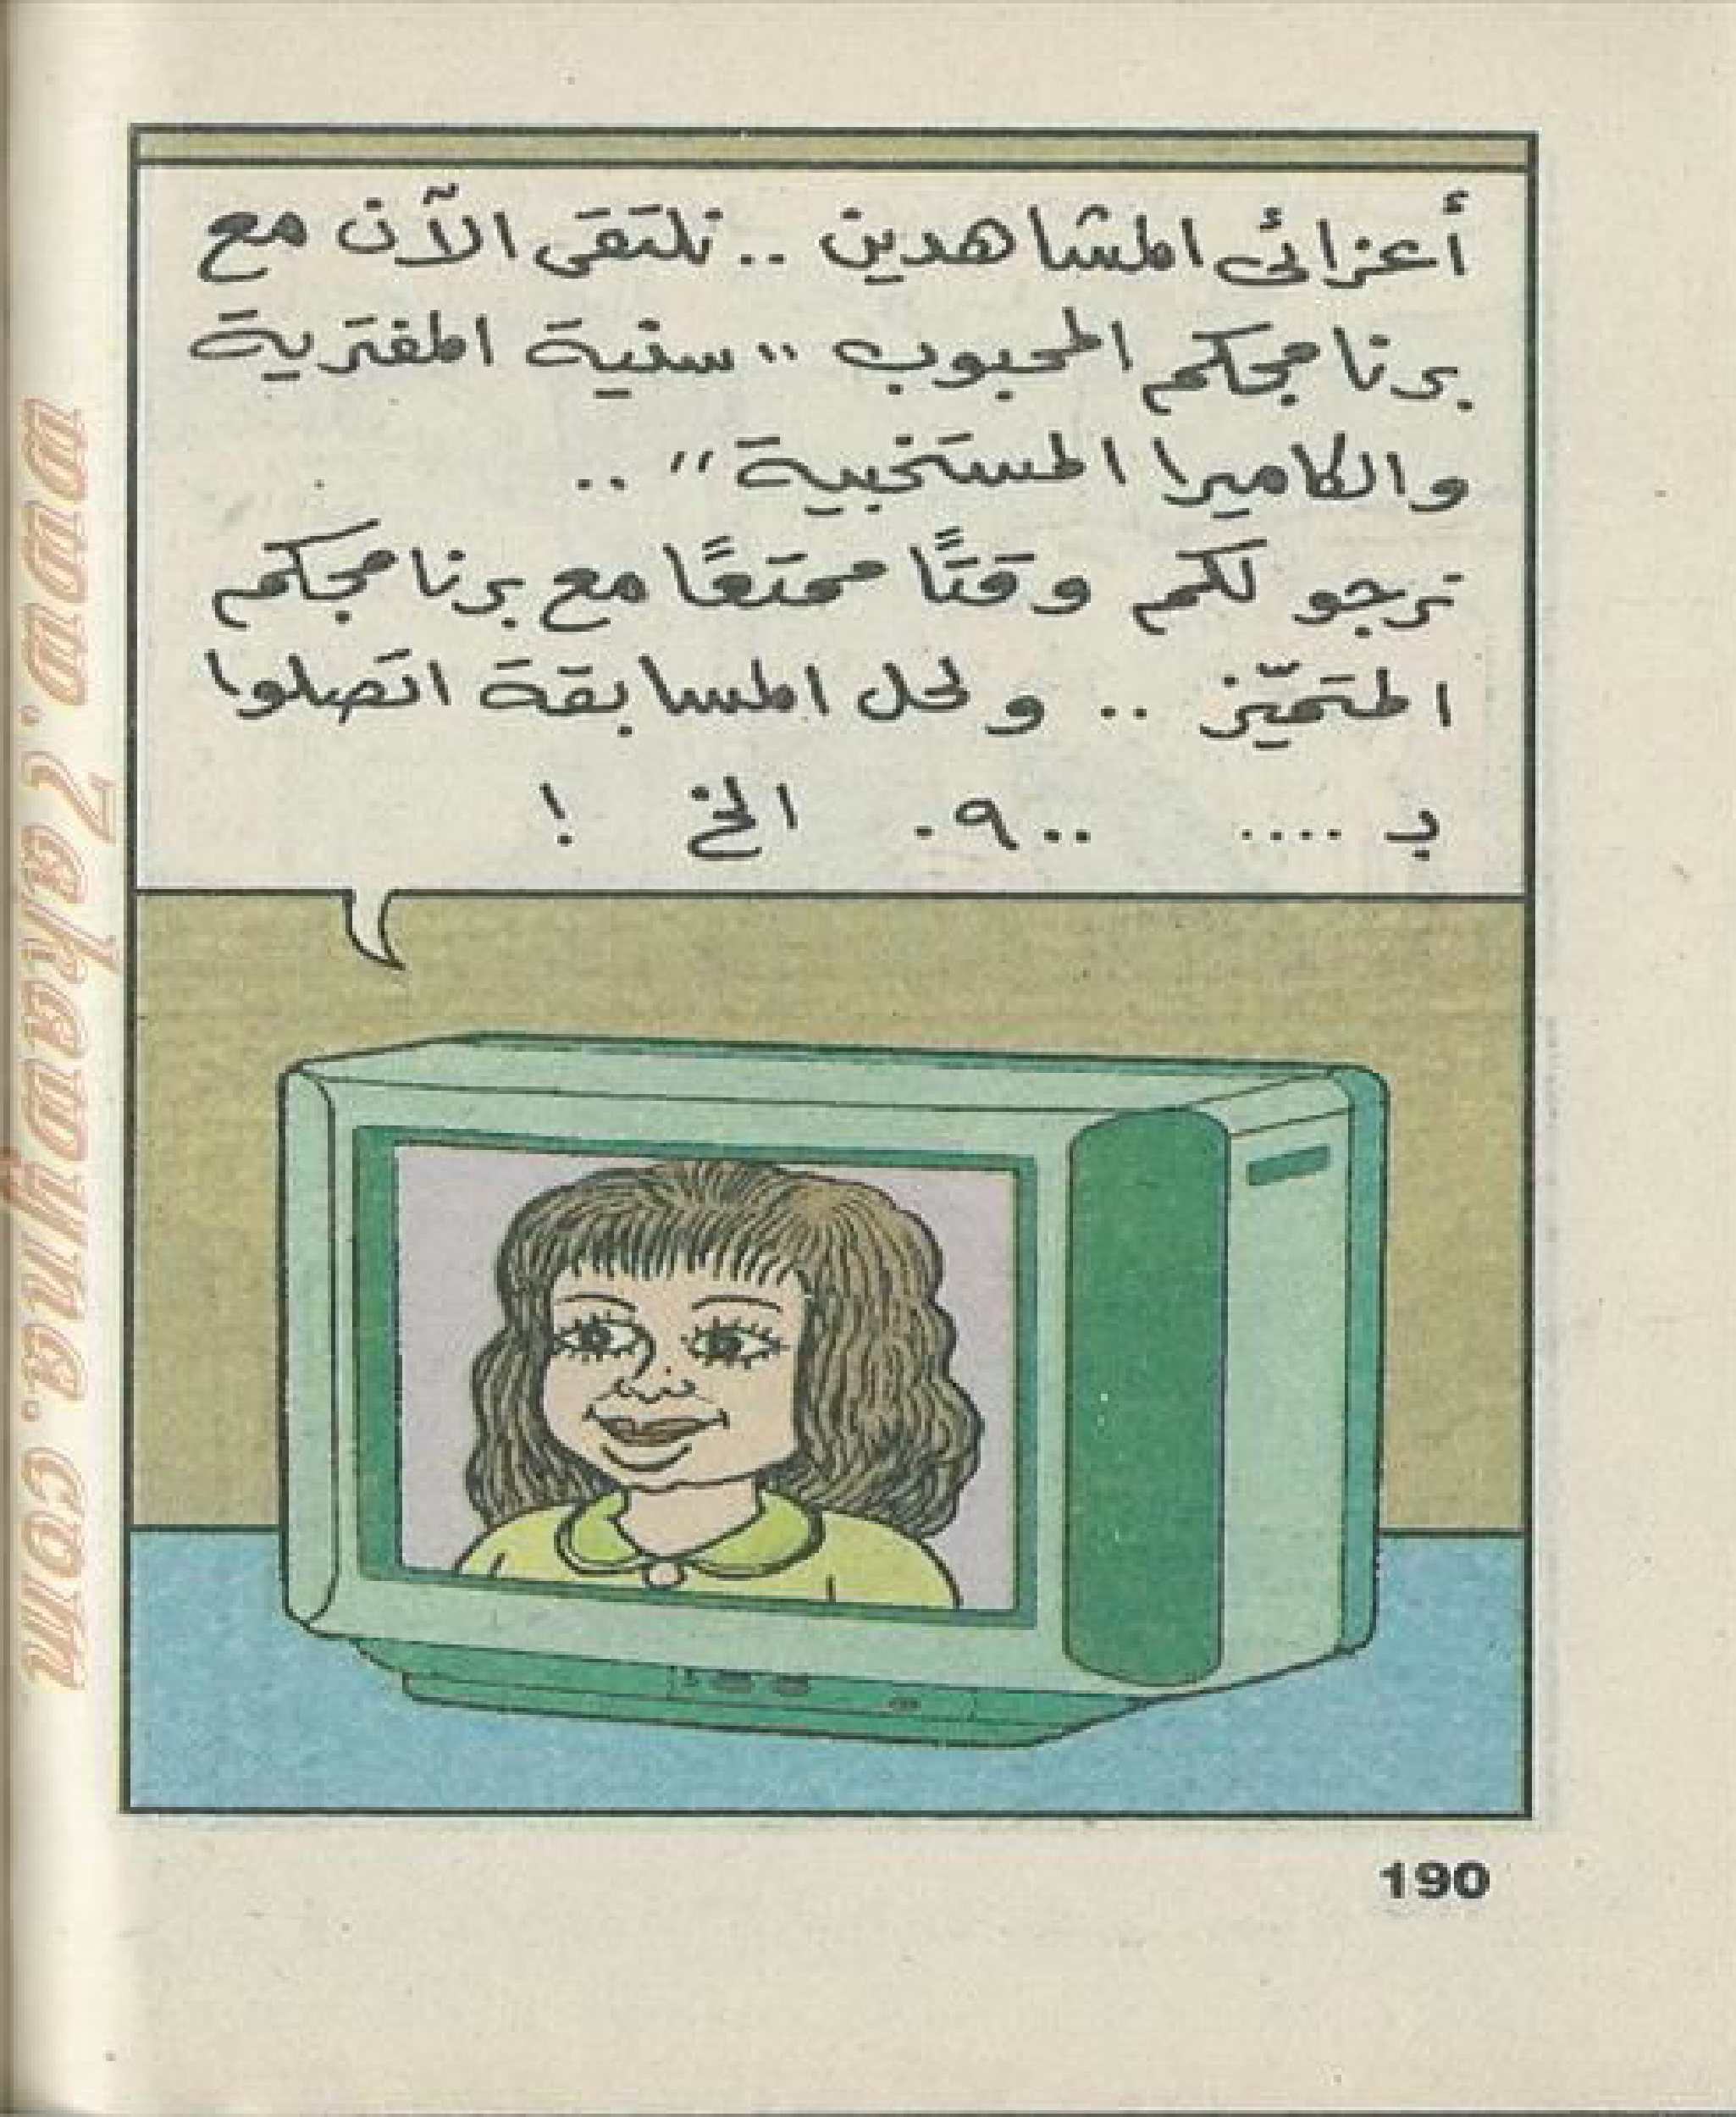 أعزائى المشاهدين .. نلتقى الآن مع
برنامجكم المحبوب "سنية المفترية
والكاميرا المستخبية" ..
نرجو لكم وقتًا ممتعًا مع برنامجكم
المتميّز .. ولحل المسابقة اتصلوا
بـ .... ٠٩٠٠ الخ !
190
www.Zakadyana.com